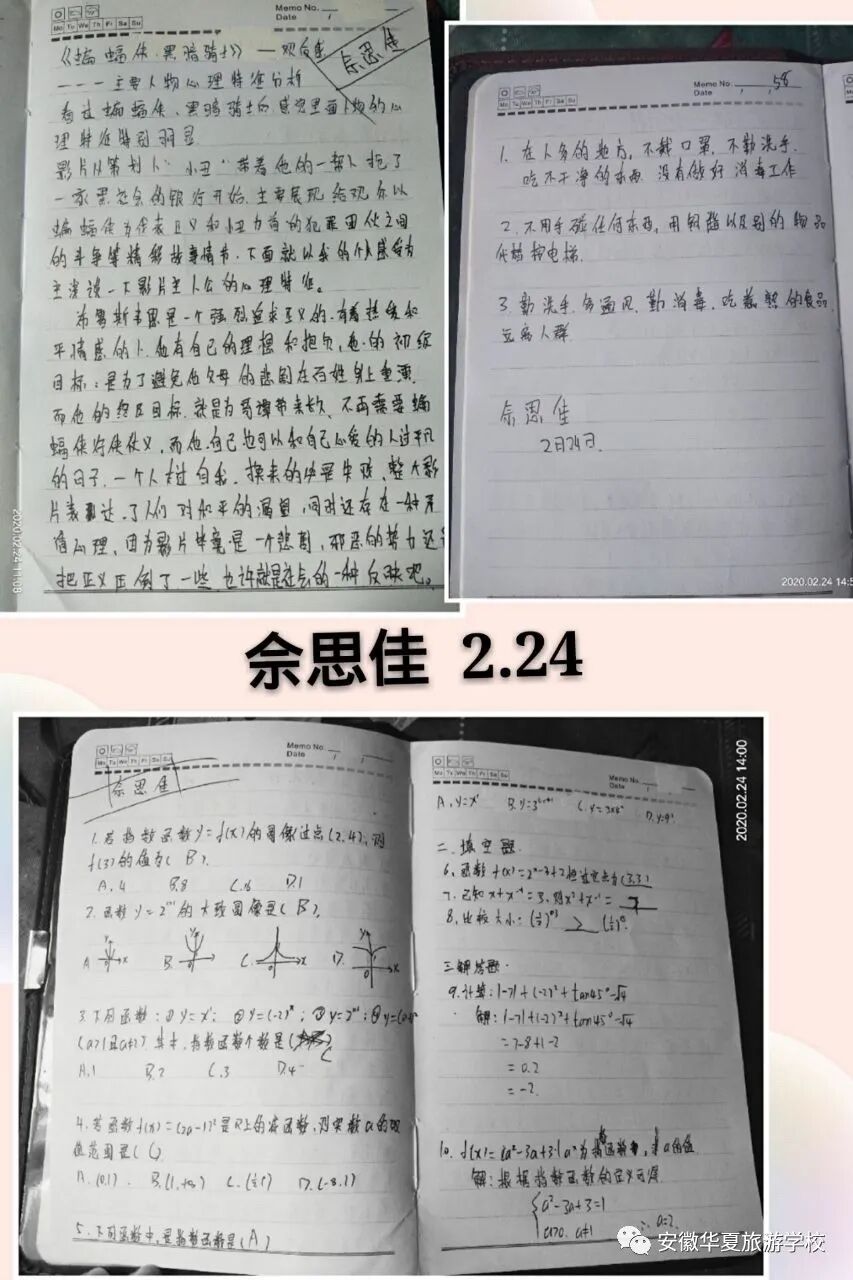 Memo No.
Date
Mo Tu We Th Fr Sa Su
《蝙蝠侠·黑暗骑士》—观后感
佘思佳
----主要人物心理特征分析
看过蝙蝠侠、黑暗骑士后,感觉里面人物的心
理特征特别明显
影片从策划人"小丑"带着他的一帮人抢了
一家黑社会的银行开始,主要展现给观众以
蝙蝠侠为代表正义和小丑为首的犯罪团伙之间
的斗争等精彩故事情节,下面就以我的个人感受为
主谈谈一下影片主人公的心理特征。
布鲁斯韦恩是一个强烈追求正义的,有着热爱和
平情感的人,他有自己的理想和抱负,他的初级
目标:是为了避免他父母的悲剧在百姓身上重演
而他的终极目标,就是为哥谭带来长久、不再需要蝙
蝠侠行侠仗义,而他自己也可以和自己心爱的人过平凡
的日子,一个人太过自我,换来的必要失败,整个影
片表达了人们对和平的渴望,同时还存在一种矛
盾心理,因为影片毕竟是一个悲剧,邪恶的势力还
把正义压倒了一些,也许就是社会的一种反映吧。
2020.02.24 11:08
Mo Tu We Th Fr Sa Su
Memo No. 58
Date
1. 在人多的地方,不戴口罩,不勤洗手,
吃不干净的东西,没有做好消毒工作
2. 不用手碰任何东西,用钥匙以及别的物品
代替按电梯.
3. 勤洗手,多通风,勤消毒,吃煮熟的食品
远离人群
佘思佳
2月24日.
2020.02.24 14:5
佘思佳 2.24
Memo No.
Date
Mo Tu We Th Fr Sa Su
佘思佳
1. 若指数函数y=f(x)的图像过点(2,4),则
f(3)的值为( B ).
A.4 B.8 C.16 D.1
2. 函数y=2ⁿ⁺¹的大致图像是( B ).
A B. C. D.
3. 下列函数:①y=x²; ②y=(-2)ˣ; ③y=2ˣ⁺¹; ④y=(a-1)ˣ
(a>1且a≠2)其中,指数函数个数是( C
A.1 B.2 C.3 D.4
4. 若函数f(x)=(2a-1)ˣ是R上的减函数,则实数a的取
值范围是( C )
A.(0,1). B.(1,+∞) C.(½,1) D.(-∞,1)
5. 下列函数中,是指数函数是( A )
Mo Tu We Th Fr Sa Su
Memo No.
Date
A. y=xˣ B. y=3ˣ⁺¹ C. y=3×4ˣ D. y=9ˣ
二. 填空题.
6. 函数f(x)=2ˣ⁻³+2恒过定点为(3,3)
7. 已知x+x⁻¹=3,则x²+x⁻²= 7
8. 比较大小:
三. 解答题.
9. 计算:|-7|+(-2)³+tan45°-√4
解:|-7|+(-2)³+tan45°-√4
=7-8+1-2
=0.2
=-2.
10. f(x)=(a²-3a+3)·aˣ为指函数,求a的值
解:根据指数函数的定义可得
a²-3a+3=1
a>0. a≠1
∴a=2.
2020.02.24 14:00
安徽华夏旅游学校